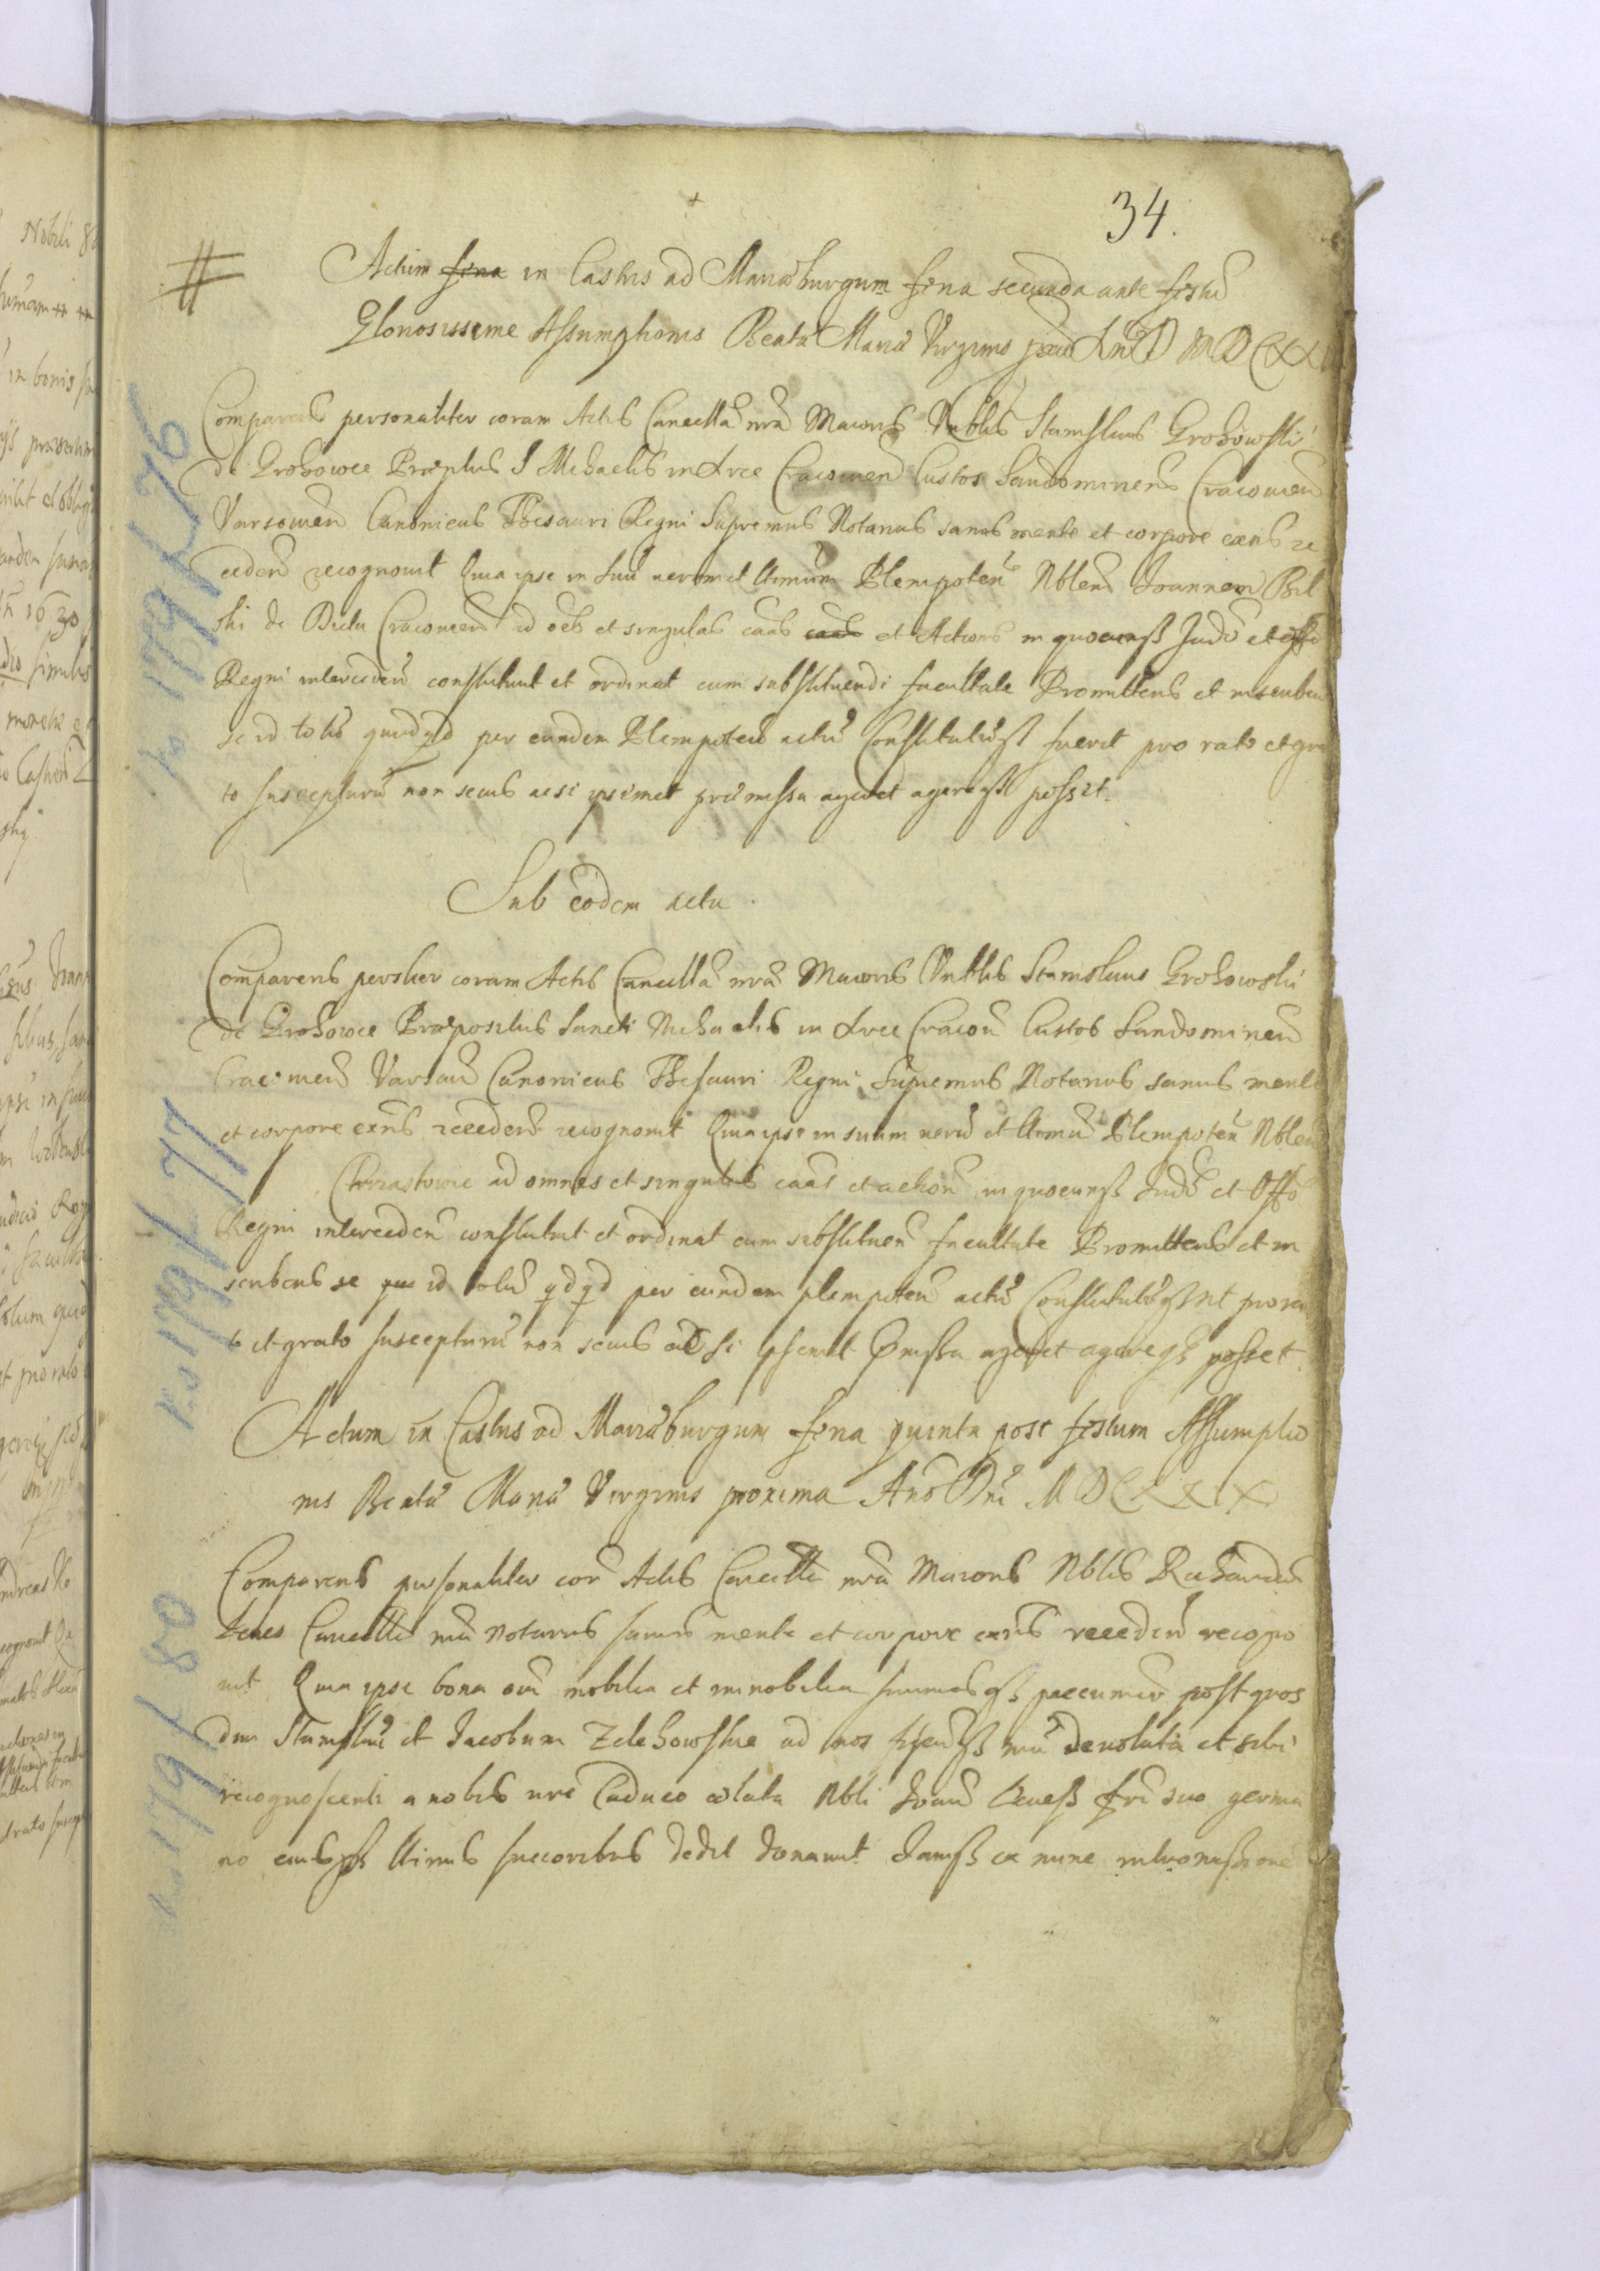 34.
Actum feria in Castris ad Mariæburgum feria secunda ante festū
Gloriosissime Assumptionis Beatæ Mariæ Virginis MDCXX
Comparens personaliter coram Actis Cancellæ nræ Maioris Vnblis Stanislaus Grohowski
de Grohowce Præptus S Michaelis in Arce Cracouien Custos Sandomirien Cracouien
Varsouien Canonicus Thesauri Regni Supremus Notarius sanus mente et corpore exns re
cedens recognouit Quia ipse in suū verum et ltimum Plenipoten Nblem Joannem Biel
ski de Cracouien ad oēs et singulas caās caās et Actiones in quocunq Jud et offo
Regni interceden constituit et ordinat cum substituendi facultate Promittens et inscriben
se id totū quidqd per eundem Plenipoten actū Constitutūq fuerit pro rato et gra
to suscepturū non secus acsi ipsemet præmissa ageret agereq posset.
Sub eodem actu.
Comparens persliter coram Actis Cancellæ nræ Maioris Vnblis Stanislaus Grohowski
de Grohowce Præpositus Sancti Michaelis in Arce Cracou Custos Sandomirien
Cracouien Varsauien Canonicus Thesauri Regni Supremus Notarius sanus mente
et corpore exns recedens recognouit Quia ipse in suum verū et ltimū Plenipoten Nblem
Chrzastowic ad omnes et singulas caās et action in quocunq Jud et Offo
Regni interceden constituit et ordinat cum substituen facultate Promittens et in
scribens se id totū qdqd per eundem plenipoten actū Constitutūq sit pro ra
to et grato suscepturū non secus ac si ipsemet pmissa ageret agereq posset.
Actum in Castris ad Mariæburgum feria quinta post festum Assumptio
nis Beatæ Mariæ Virginis proxima Anō Dni MDCXXIX
Comparens personaliter corā Actis Cancellæ nræ Maioris Nblis Richardus
Cancellæ nræ Notarius sanus mente et corpore exns recedens recogno
uit Quia ipse bona oia mobilia et immobilia summasq pecuniar post gnos
dm Stanislaū et Jacobum Zelechowskie ad nos fiscumq nrū devoluta et sibi
recognoscenti a nobis iure Caduco colata Nbli Joan fri suo germa
no eiusq ltimis succoribus dedit donauit Jamq ex nunc intromissione
k. 179/ 76
k. 179/ 77
k. 179/ 80